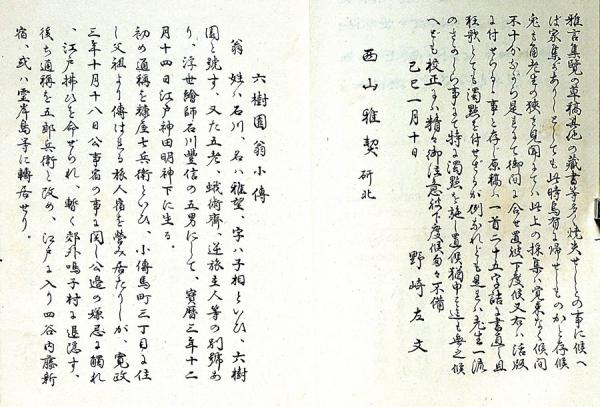 雅言集覽の草稿其他の藏書等多く燒失せしとの事に候へ
ば家集がありしとしても此時烏有に歸せしものかと存候
兎も角老生の狹き見聞にては此上の採集は覺束なく候間
不十分ながら是にて御間に合せ置被下度候又右は活版
に付せらるゝ事と存じ原稿は一首二十五字詰に書直し且
狂歌としても濁點を付せざるが例なれども是は先生一流
のきまりの事にて特に濁點を施し置候猶申す迄も無之候
へども校正には精々御注意被下度候匆々不備
己巳一月十日
野崎左文
西山雅契 研北
六樹園翁小傳
翁 姓は石川、名は雅望、字は子相といひ、六樹
園と號す、又た五老、蛾術齋、逆旅主人等の別號あ
り、浮世繪師石川豐信の五男にして、寶曆三年十二
月十四日江戸神田明神下に生る。
初め通稱を糠屋七兵衞といひ、小傳馬町三丁目に住
し父祖より傳はれる旅人宿を營み居たりしが、寬政
三年十月十八日公事宿の事に関し公邊の嫌忌に觸れ
、江戸拂ひを命せられ、暫く郊外鳴子村に退隱す、
後ち通稱を五郎兵衞と改め、江戸に入り四谷内藤新
宿、或は靈岸島等に轉居せり。